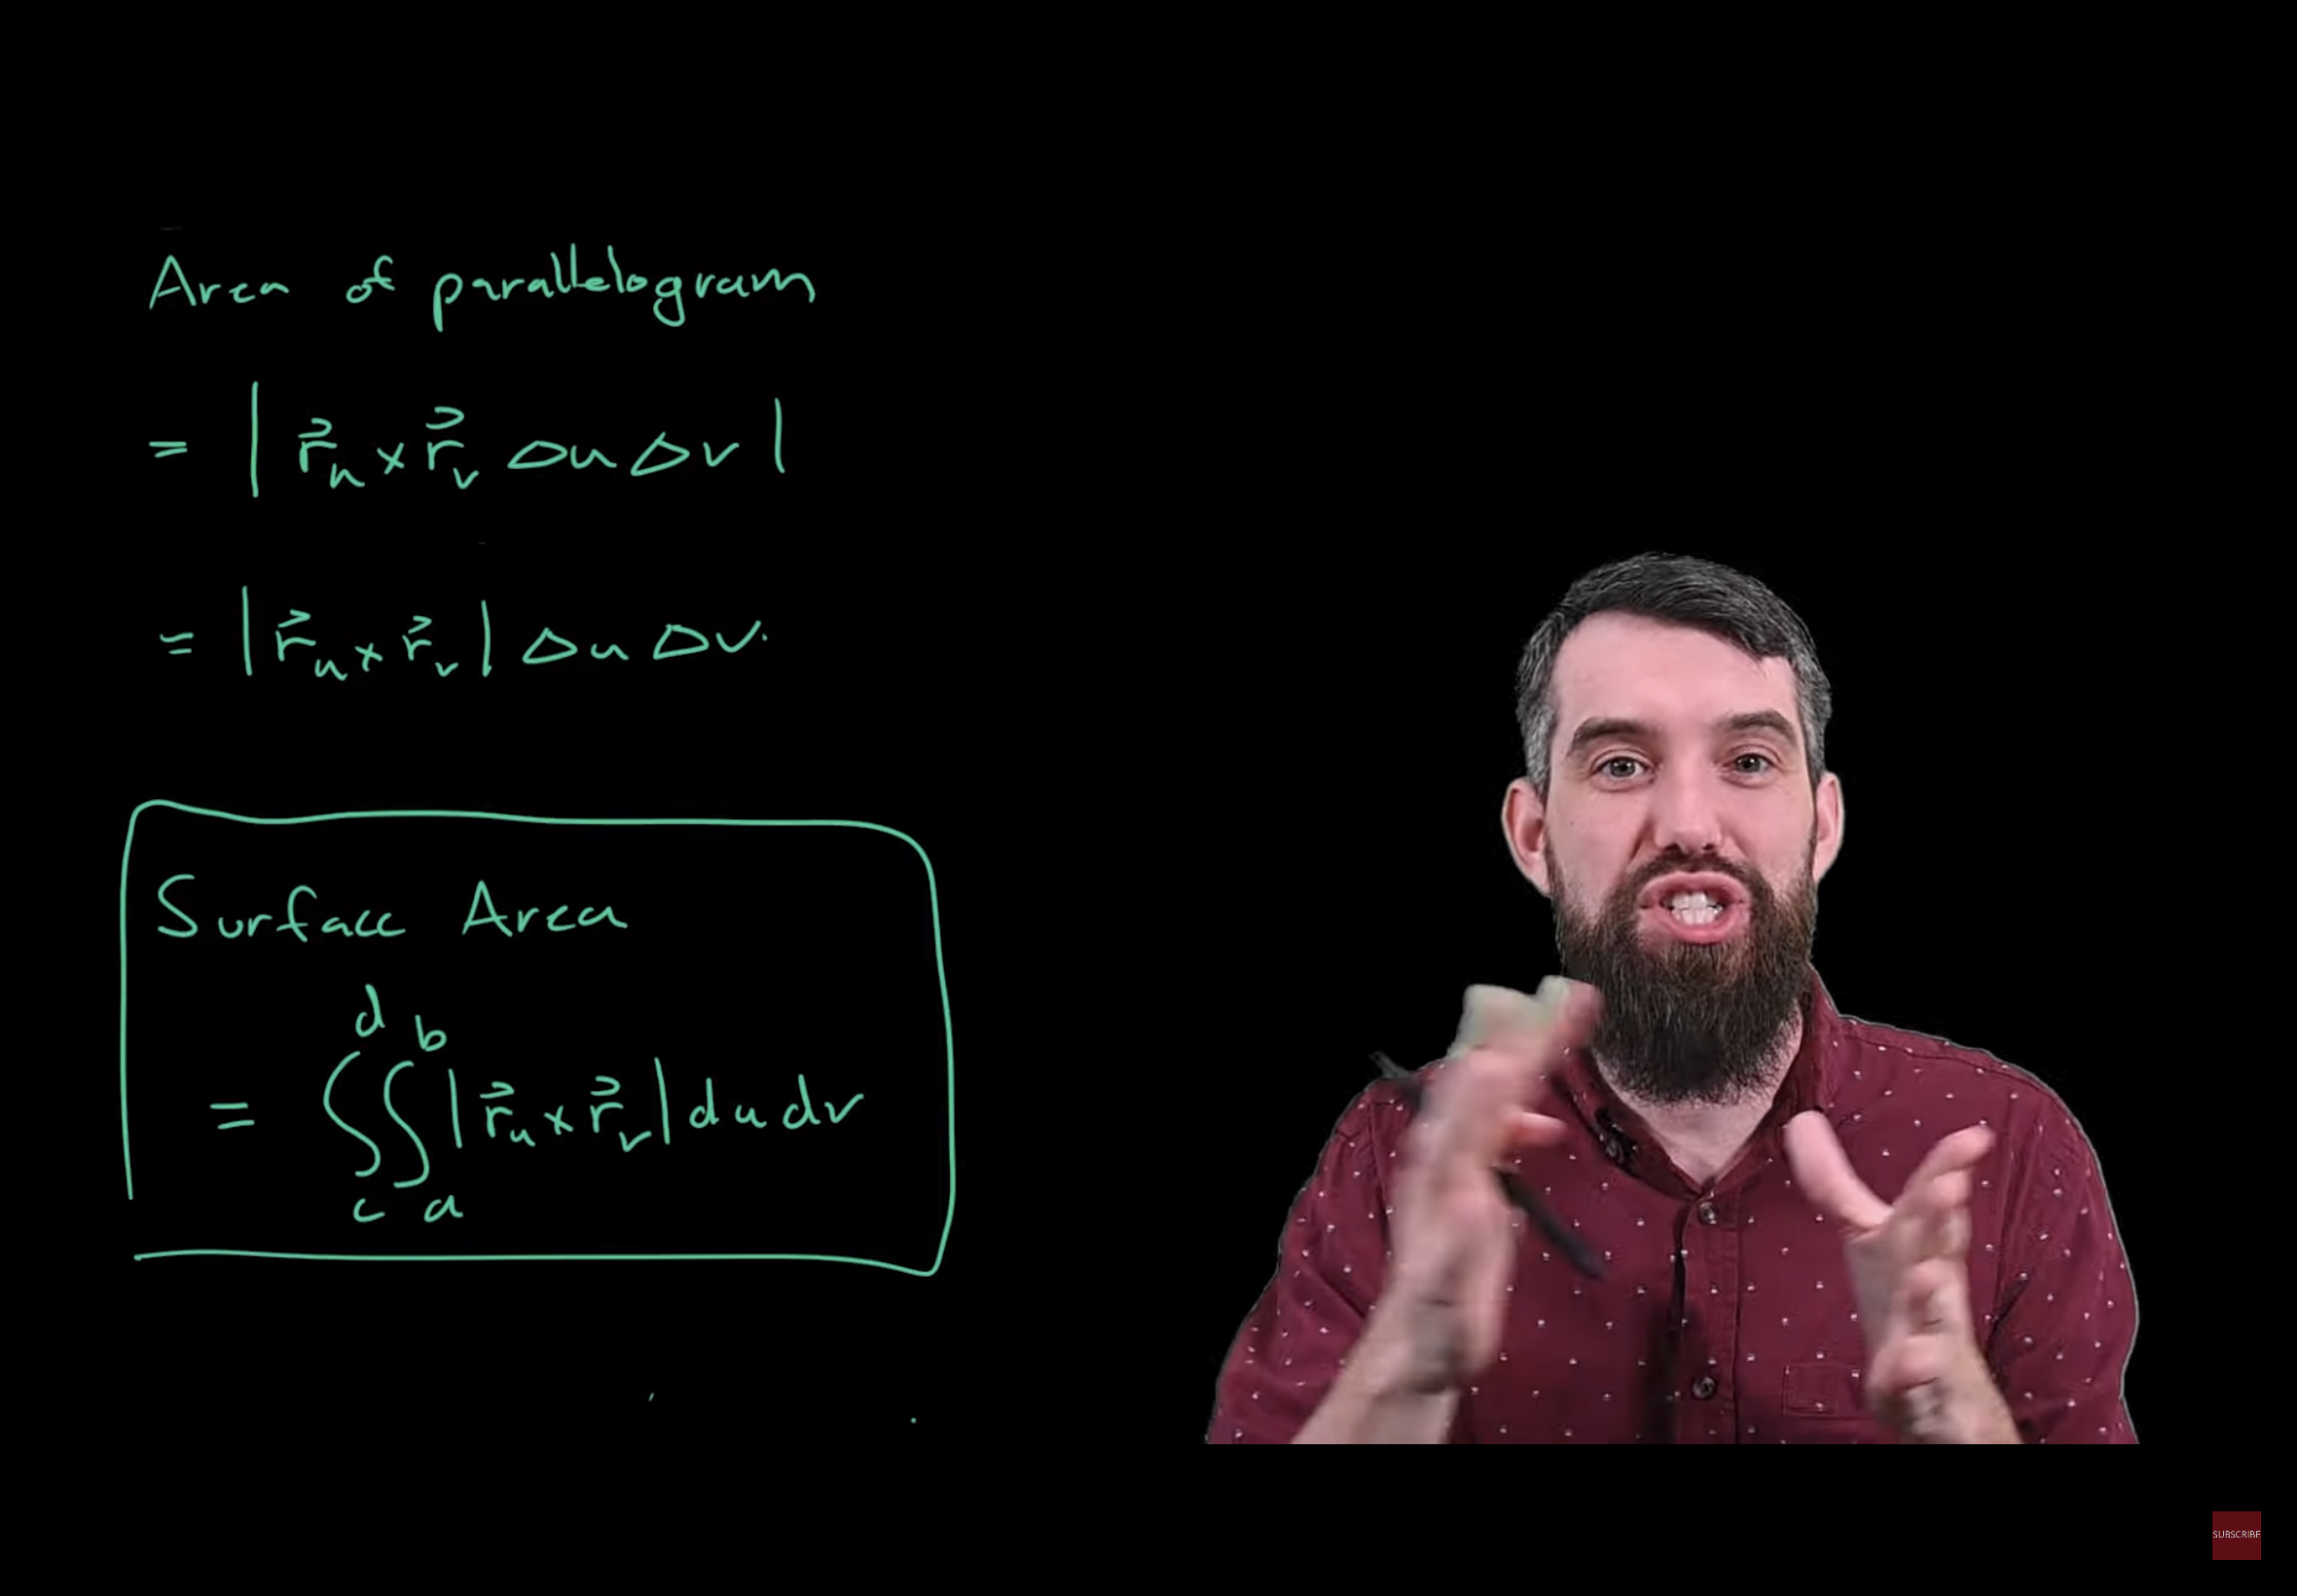 Area of parallelogram
= | r⃗ᵤ × r⃗ᵥ Δu Δv |
= | r⃗ᵤ × r⃗ᵥ | Δu Δv.
Surface Area
= ∫_c^d ∫_a^b | r⃗ᵤ × r⃗ᵥ | du dv
SUBSCRIBE